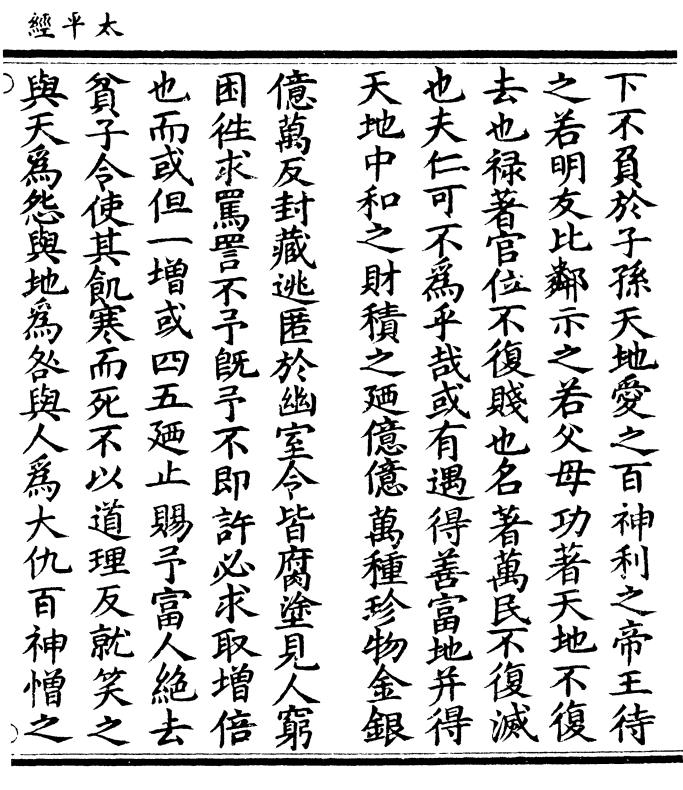 太平經
下不負於子孫天地愛之百神利之帝王待
之若明友比鄰示之若父母功著天地不復
去也祿著官位不復賤也名著萬民不復滅
也夫仁可不爲乎哉或有遇得善富地并得
天地中和之財積之廼億億萬種珍物金銀
億萬反封藏逃匿於幽室令皆腐塗見人窮
困往求罵詈不予旣予不即許必求取增倍
也而或但一增或四五廼止賜予富人絕去
貧子令使其飢寒而死不以道理反就笑之
與天爲怨與地爲咎與人爲大仇百神憎之